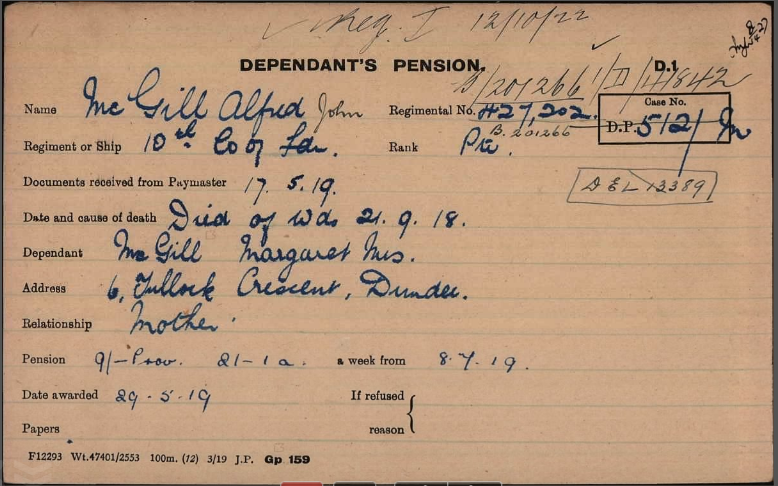 ✓ Reg. I 12/10/22 ✓
DEPENDANT'S PENSION. D.1
B/201266/1/D/14842
Name Mc Gill Alfred John Regimental No. 427,202. Case No.
B. 201266 D.P. 512/
Regiment or Ship 10th Co of Ldn. Rank Pte.
Documents received from Paymaster 17. 5. 19. DEL 13389
Date and cause of death Died of Wds 21. 9. 18.
Dependant McGill Margaret Mrs.
Address 6, Tullock Crescent, Dundee.
Relationship Mother.
Pension 9/- Prov. 21-1a. a week from 8.7.19.
Date awarded 29.5.19 If refused
Papers reason
F12293 Wt.47401/2553 100m. (12) 3/19 J.P. Gp 159